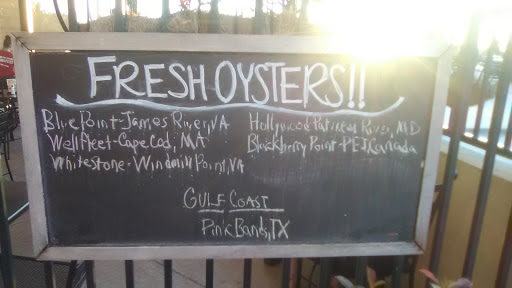 FRESH OYSTERS!!
Blue Point-James River, VA
Wellfleet-Cape Cod, MA
Whitestone-Windmill Point, VA
Hollywood Patuxent River, MD
Blackberry Point-PEI, Canada
GULF COAST
Pink Bands, TX